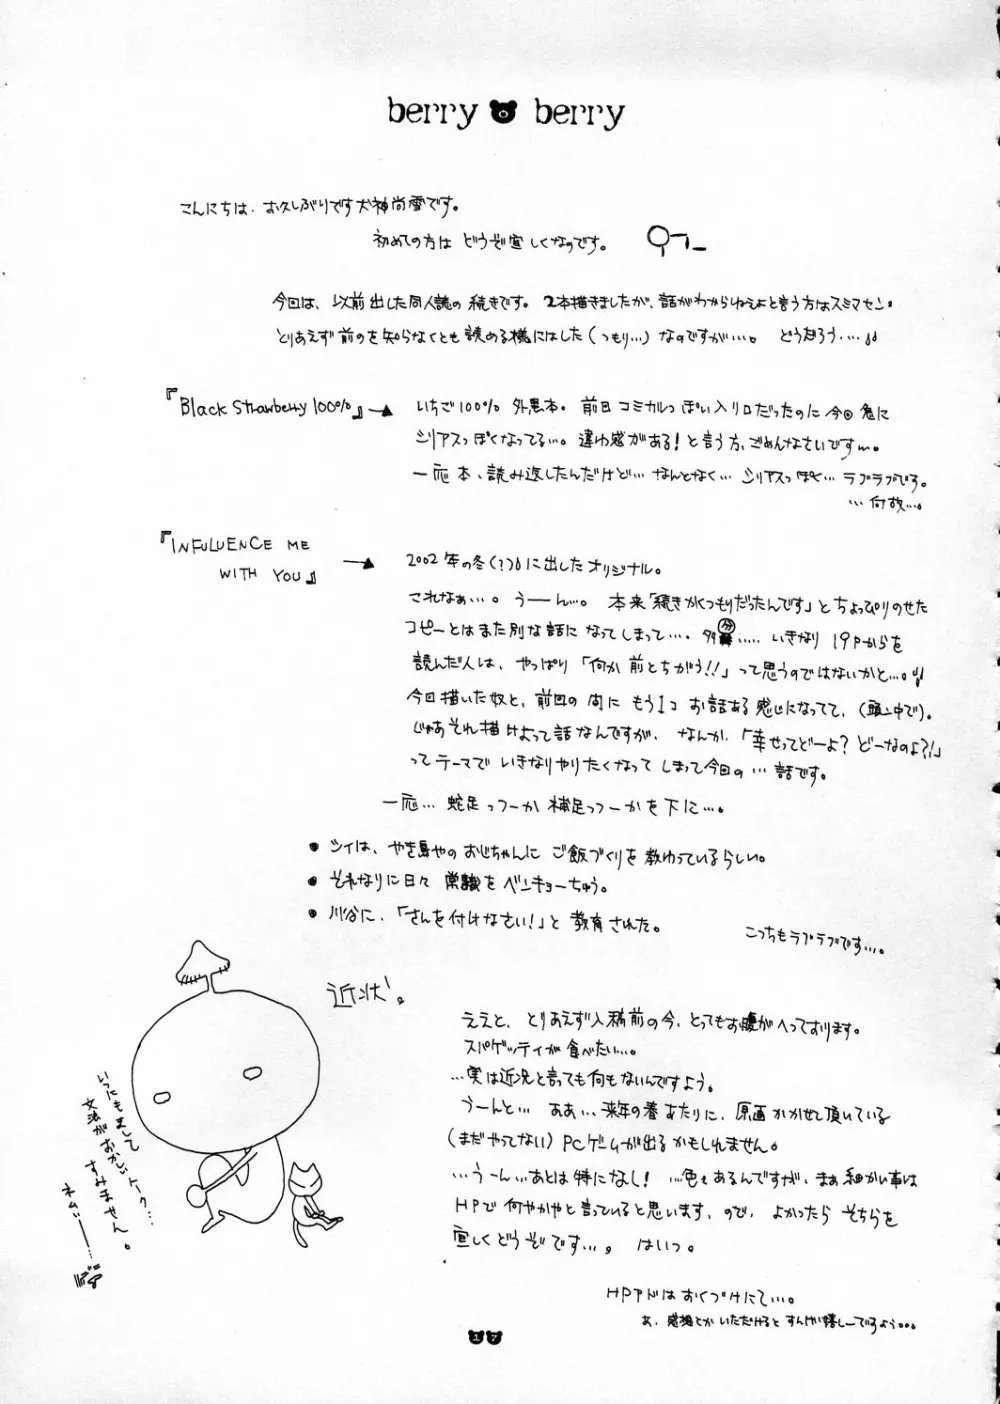 berry berry
こんにちは、お久しぶりです犬神尚雪です。
初めての方は どうぞ宜しくなのです。
今回は、以前出した同人誌の続きです。2本描きましたが、話がわからねぇよと言う方はスミマセン。
とりあえず前のを知らなくとも読める様にはした(つもり…)なのですが…。どうだろう…
『Black Strawberry 100%』→
いちご100% 外墨本。前回コミカルっぽい入り口だったのに今回急に
シリアスっぽくなってるし…。違和感がある!と言う方、ごめんなさいです…。
一応本、読み返したんだけど…なんとなく…シリアスっぽく…ラブラブです。
…何故…。
『INFULUENCE ME
WITH YOU』→
2002年の冬(?)に出したオリジナル。
これなぁ…。うーん…。本来「続きがくつもりだったんです」とちょっぴりのせた
コピーとはまた別な話になってしまって…。多分…..いきなり19Pからを
読んだ人は、やっぱり「何か前とちがう!!」って思うのではないかと…。
今回描いた奴と、前回の間にもう1コお話ある感じになってて、(頭ン中で)。
じゃあそれ描けよって話なんですが、なんか、「幸せってどーよ?どーなのよ?!」
ってテーマでいきなりやりたくなってしまって今回の…話です。
一応…蛇足っつーか補足っつーかを下に…。
● シイは、やき鳥やのおじちゃんにご飯づくりを教わっているらしい。
● それなりに日々常識をベンキョーちゅう。
● 川谷に、「さんを付けなさい!」と教育された。
こっちもラブラブです…。
近状。
ええと、とりあえず入稿前の今、とってもお腹がへっております。
スパゲッティが食べたい…。
…実は近況と言っても何もないんですよう。
うーんと…ああ…来年の春あたりに、原画かかせて頂いている
(まだやってない)PCゲームが出るかもしれません。
…うーん…あとは特になし!…色々あるんですが、まぁ細かい事は
HPで何やかやと言っていると思います、ので、よかったらそちらを
宜しくどうぞです…。はいっ。
HPアドはおくづけにて…。
あ、感想とかいただけるとすんげい嬉しーですよう…
いつにもまして
文法がおかしいトーク…
すみません。
ネムいー…
17